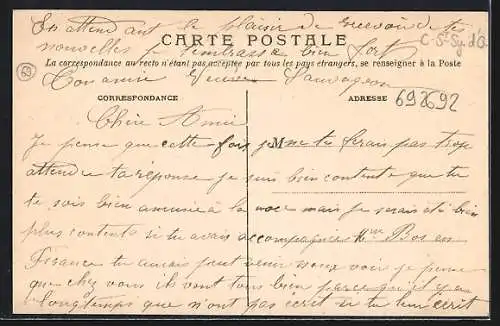 En attendant le plaisir de recevoir de tes
nouvelles je t'embrasse bien fort
CARTE POSTALE
C-St-Sy d'O
La correspondance au recto n'étant pas acceptée par tous les pays étrangers, se renseigner à la Poste
69
Ton amie Sauvageon
CORRESPONDANCE
ADRESSE
692692
Chère Amie
M
Je pense que cette fois tu ne te ferais pas trop
attendre ta réponse je suis bien contente que tu
te sois bien amusée à la noce mais je serais été bien
plus contente si tu avais accompagnée Mme Bos en
France tu aurais peut venir nous voir je pense
que chez vous ils vont tous bien parce qu'il y a
longtemps que n'ont pas écrit si tu leur écrit